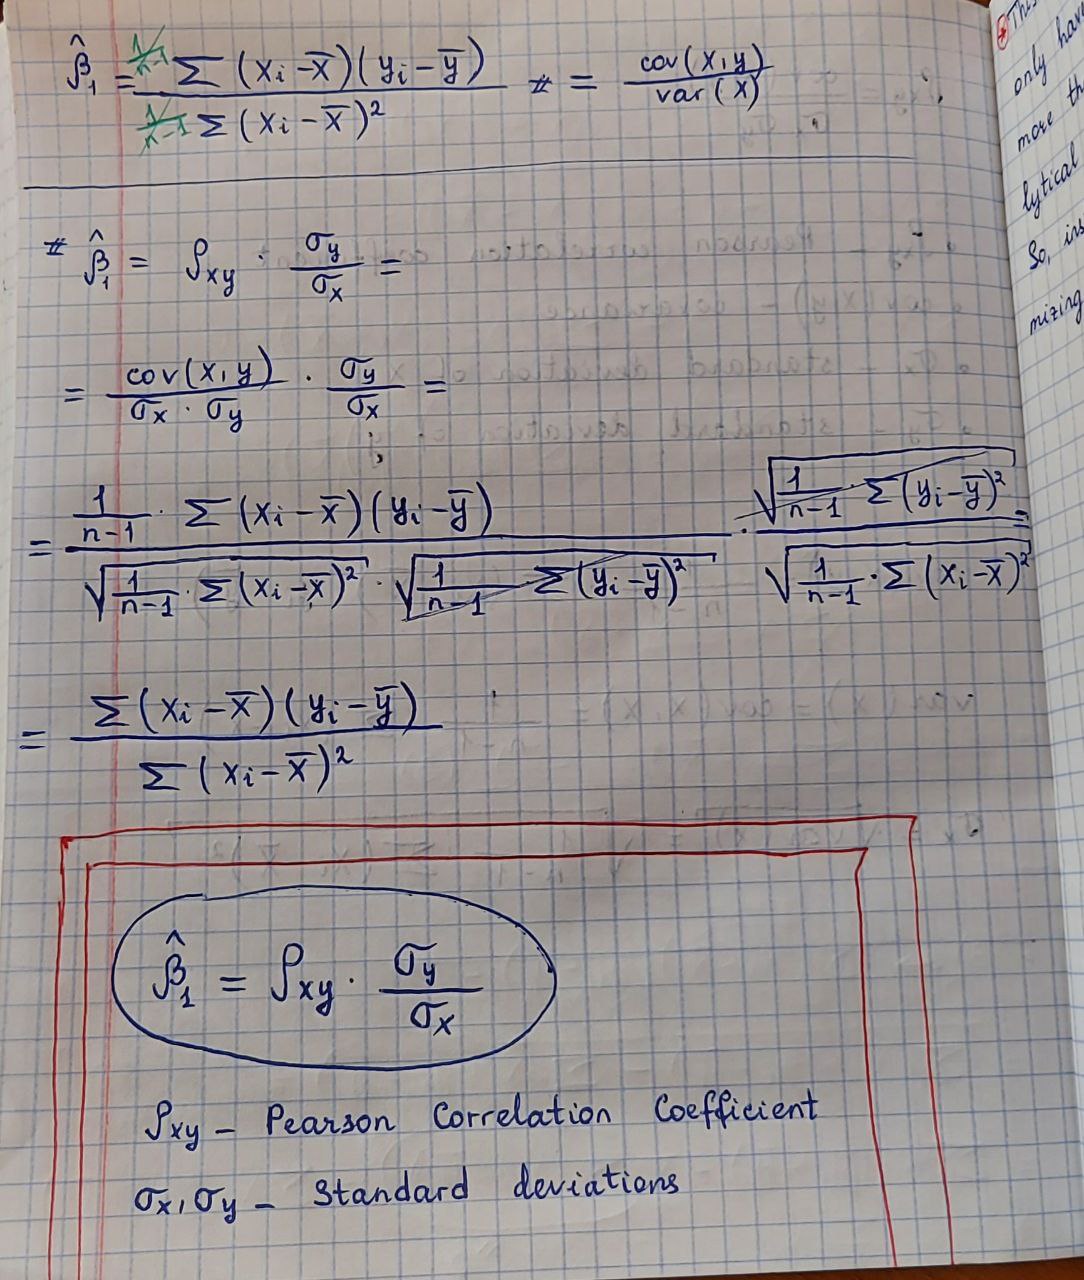 β̂₁ = 1/n-1 Σ (xi - x̄)(yi - ȳ) / 1/n-1 Σ (xi - x̄)² # = cov(x,y) / var(x)
# β̂₁ = ρxy · σy / σx =
= cov(x,y) / σx · σy · σy / σx =
= 1/n-1 · Σ (xi - x̄)(yi - ȳ) / √(1/n-1 · Σ (xi - x̄)²) · √(1/n-1 Σ (yi - ȳ)²) · √(1/n-1 · Σ (yi - ȳ)²) / √(1/n-1 · Σ (xi - x̄)²) =
= Σ (xi - x̄)(yi - ȳ) / Σ (xi - x̄)²
β̂₁ = ρxy · σy / σx
ρxy - Pearson Correlation Coefficient
σx, σy - Standard deviations
This
only have
more
lytical
So,
mizing